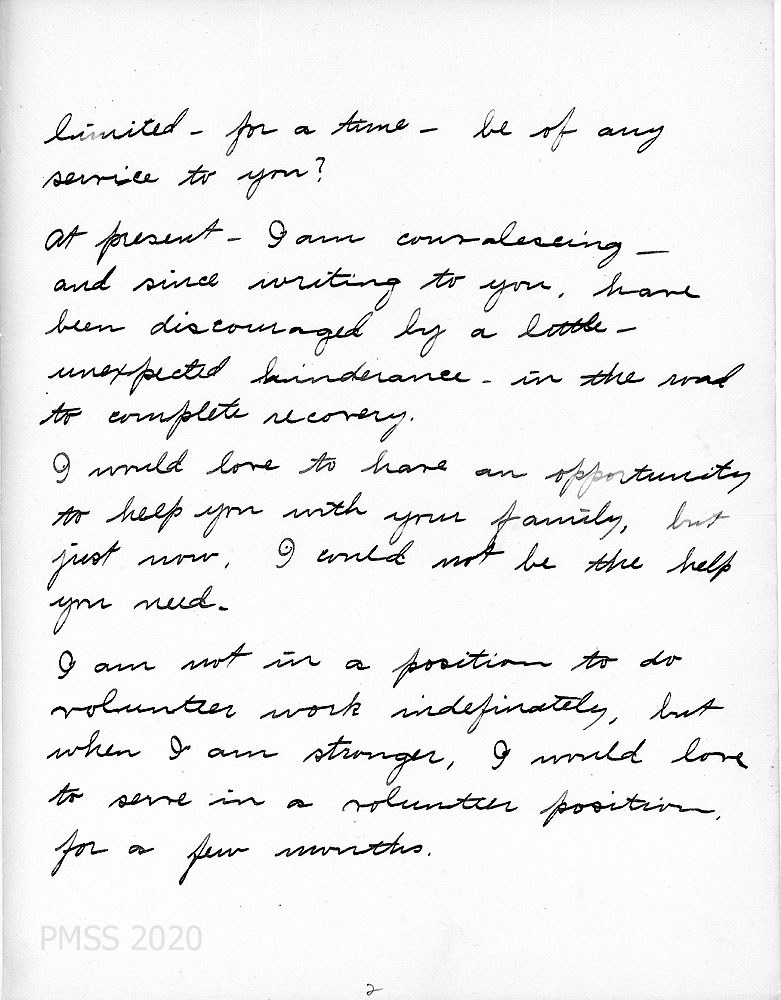 limited - for a time - be of any
service to you?
At present - I am convalescing -
and since writing to you, have
been discouraged by a little -
unexpected hinderance - in the road
to complete recovery.
I would love to have an opportunity
to help you with your family, but
just now, I could not be the help
you need -
I am not in a position to do
volunteer work indefinately, but
when I am stronger, I would love
to serve in a volunteer position,
for a few months.
PMSS 2020
2